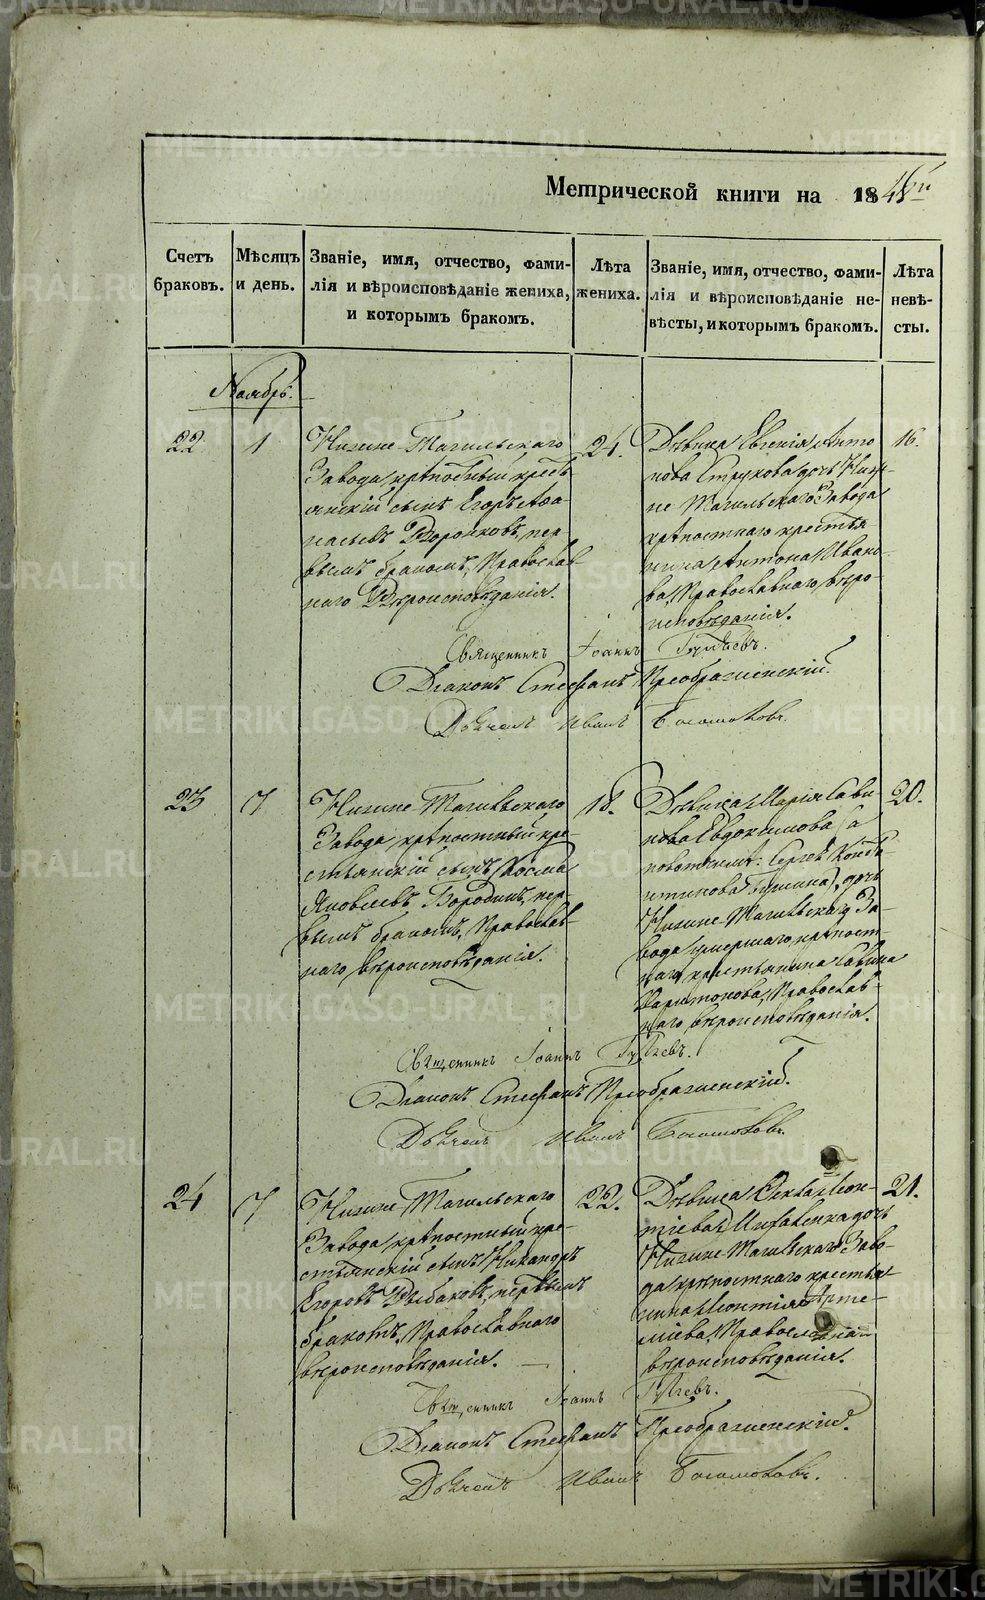 Метрической книги на 1848й
Счетъ браковъ.
Мѣсяцъ и день.
Званіе, имя, отчество, фами-
лія и вѣроисповѣданіе жениха,
и которымъ бракомъ.
Лѣта жениха.
Званіе, имя, отчество, фами-
лія и вѣроисповѣданіе не-
вѣсты, и которымъ бракомъ.
Лѣта невѣ-
сты.
Ноябрь.
22.
1
Нижне Тагильскаго
Завода крѣпостный кресть
янскій сынъ Егоръ Афа
насьевъ пер
вымъ бракомъ, Православ
наго Вѣроисповѣданія.
21.
Дѣвица Евгенія Анто
нова дочь Ниж-
не Тагильскаго Завода
крѣпостнаго крестья
нина Антона Ивано
ва, Православнаго вѣро-
исповѣданія.
16.
Священникъ Іоаннъ
Діаконъ Стефанъ Преображенскій.
Дьячекъ Иванъ Богомоловъ.
23
7
Нижне Тагильскаго
Завода крѣпостный кре-
стьянскій сынъ Косма
Яковлевъ Бородинъ, пер-
вымъ бракомъ, Православ
наго вѣроисповѣданія.
18.
Дѣвица Марія Сави
нова Евдокимова (а
дочь
Нижне-Тагильскаго За-
вода умершаго крѣпост-
наго крестьянина Савина
Харитонова, Православ-
наго вѣроисповѣданія.
20.
Священникъ Іоаннъ
Діаконъ Стефанъ Преображенскій.
Дьячекъ Иванъ Богомоловъ.
24
7
Нижне Тагильскаго
Завода крѣпостный кре-
стьянскій сынъ Никандръ
Егоровъ Рыбаковъ, первымъ
бракомъ, Православнаго
вѣроисповѣданія.
22.
Дѣвица Леон-
тіева дочь
Нижне-Тагильскаго Заво-
да крѣпостнаго крестья
нина Леонтія Арте-
міева, Православнаго
вѣроисповѣданія.
21.
Священникъ Іоаннъ
Діаконъ Стефанъ Преображенскій.
Дьячекъ Иванъ Богомоловъ.
METRIKI.GASO-URAL.RU